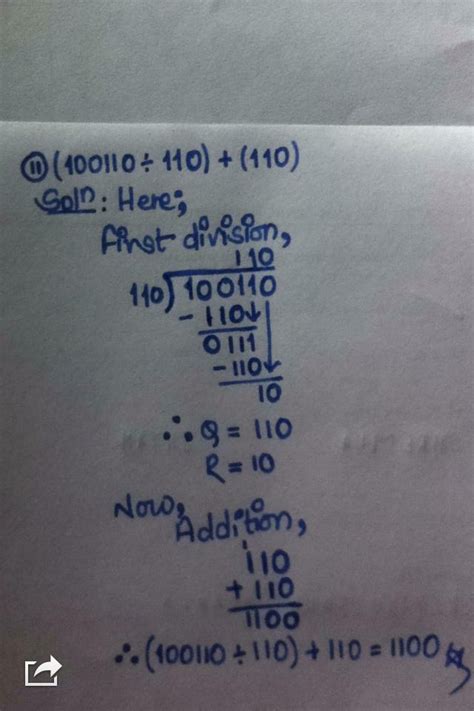 ⑪ (100110 ÷ 110) + (110)
Solⁿ: Here;
first division,
110
110) 100110
- 110
0111
- 110
10
∴ Q = 110
R = 10
Now,
Addition,
1
110
+ 110
1100
∴ (100110 ÷ 110) + 110 = 1100